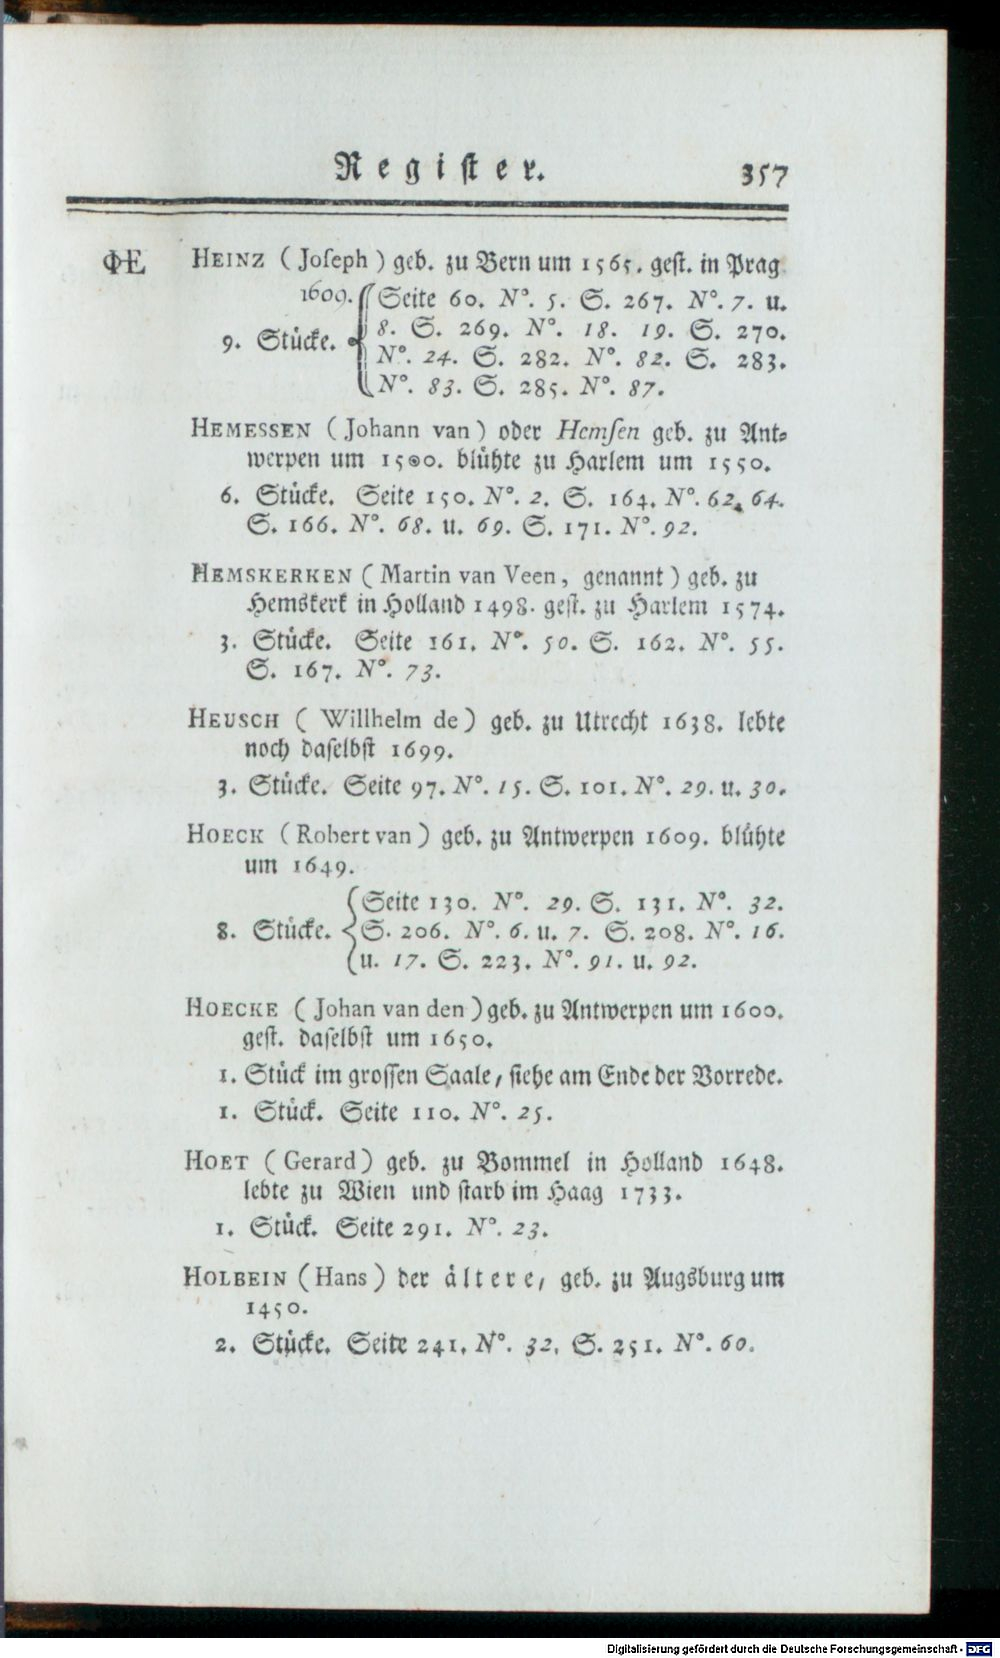 Register. 357
ΦE HEINZ (Joseph) geb. zu Bern um 1565. gest. in Prag
1609. Seite 60. N°. 5. S. 267. N°. 7. u.
9. Stücke. 8. S. 269. N°. 18. 19. S. 270.
N°. 24. S. 282. N°. 82. S. 283.
N°. 83. S. 285. N°. 87.
HEMESSEN (Johann van) oder Hemsen geb. zu Ant-
werpen um 1500. blühte zu Harlem um 1550.
6. Stücke. Seite 150. N°. 2. S. 164. N°. 62. 64.
S. 166. N°. 68. u. 69. S. 171. N°. 92.
HEMSKERKEN (Martin van Veen, genannt) geb. zu
Hemskerk in Holland 1498. gest. zu Harlem 1574.
3. Stücke. Seite 161. N°. 50. S. 162. N°. 55.
S. 167. N°. 73.
HEUSCH (Willhelm de) geb. zu Utrecht 1638. lebte
noch daselbst 1699.
3. Stücke. Seite 97. N°. 15. S. 101. N°. 29. u. 30.
HOECK (Robert van) geb. zu Antwerpen 1609. blühte
um 1649.
Seite 130. N°. 29. S. 131. N°. 32.
8. Stücke. S. 206. N°. 6. u. 7. S. 208. N°. 16.
u. 17. S. 223. N°. 91. u. 92.
HOECKE (Johan van den) geb. zu Antwerpen um 1600.
gest. daselbst um 1650.
1. Stück im grossen Saale, siehe am Ende der Vorrede.
1. Stück. Seite 110. N°. 25.
HOET (Gerard) geb. zu Bommel in Holland 1648.
lebte zu Wien und starb im Haag 1733.
1. Stück. Seite 291. N°. 23.
HOLBEIN (Hans) der ältere, geb. zu Augsburg um
1450.
2. Stücke. Seite 241. N°. 32. S. 251. N°. 60.
Digitalisierung gefördert durch die Deutsche Forschungsgemeinschaft - DFG